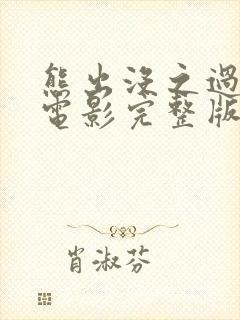 熊出没之过
电影完整版
肖淑芬